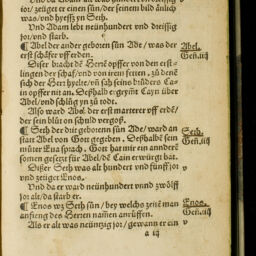 jor/ zeüget er einen sün/ der seinem bild ånlich
was/ vnd hyeßß yn Seth.
Vnd Adam lebt neünhundert vnd dreissig
jor/ vnd starb.
¶ Abel der ander geboren sün Ade/ was der
erst schåfer vff erden.
Abel.
Geñ.iiij
Diser bracht dē Herrē opffer von den erst-
lingen der schaf/ vnd von irem feiten. zů denē
sich der Herr
in opffer nit an. Deßhalb ergrymt Cayn über
Abel/ vnd schlůg yn zů todt.
Also ward Abel der erst marterer vff erdē/
der sein blůt on schuld vergoß.
¶ Seth der drit geborenn sün Ade/ ward an
statt Abel von Gott gegeben. Deßhalbē sein
můter Eua sprach. Gott hat mir ein annderē
somen gesetzt für Abel/ dē Cain erwürgt hat.
Seth.
Geñ.iiij
Dißer Seth was alt hundert vnd fünff jor
vnd zeüget Enos.
v
Vnd da er ward neünhundert vnnd zwölff
jor alt/ da starb er.
¶ Enos wz Seth sün/ bey welchs zeitē man
anfieng des Herren namen anrüffen.
Enos.
Geñ.iiij
Als er alt was neüntzig jor/ gewann er ein
v
a iij